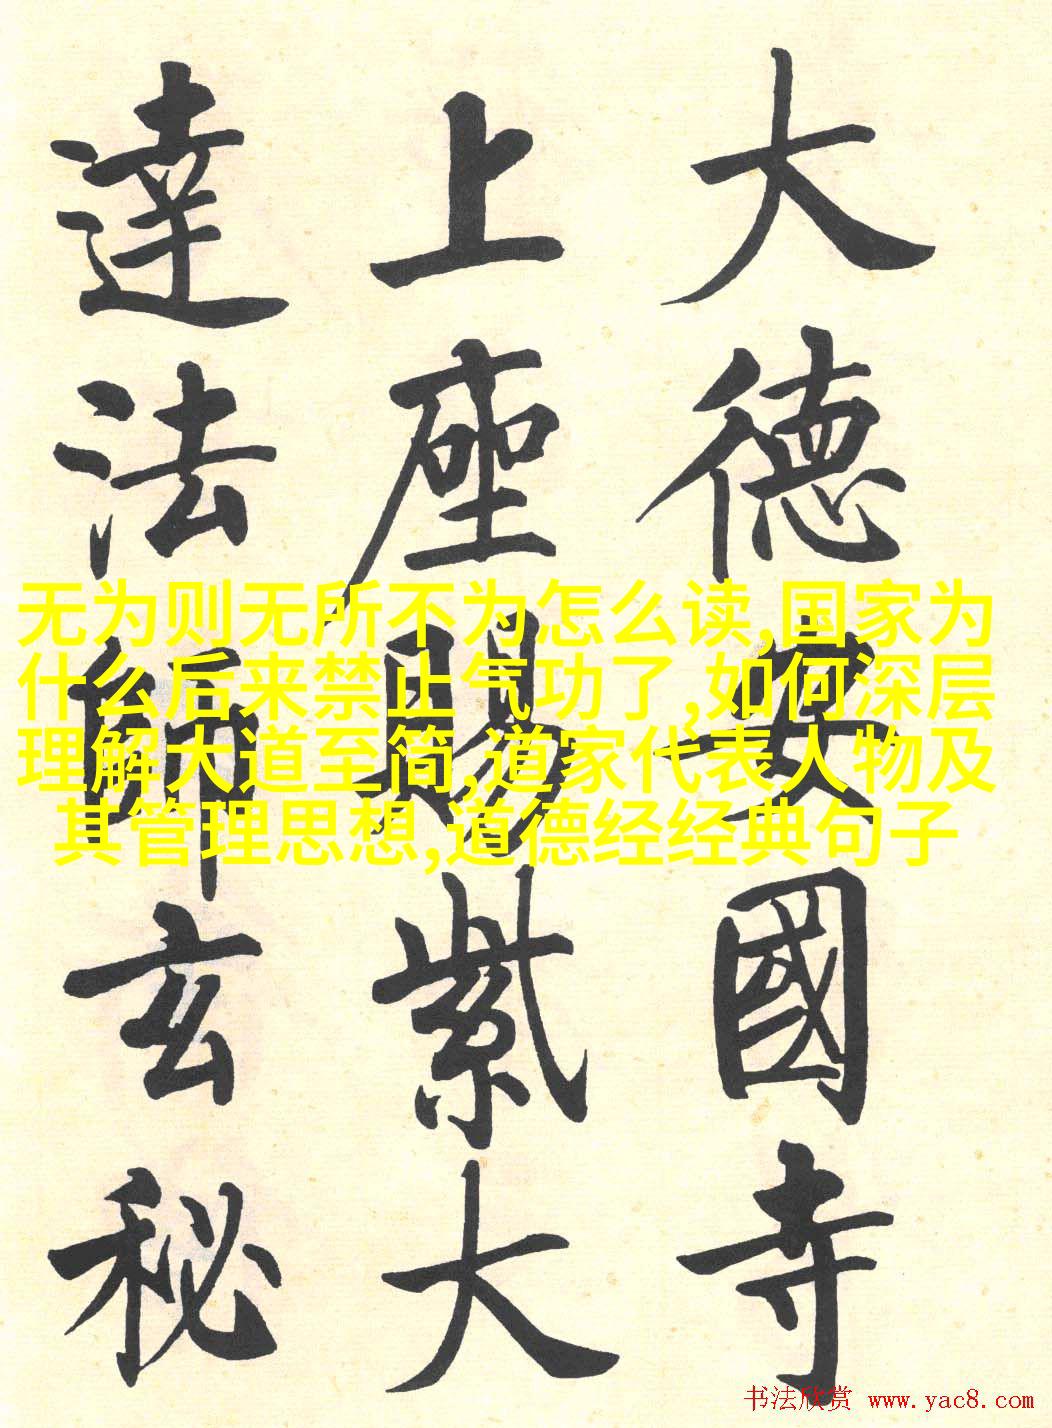 大德安國寺
上座賜紫大
達法師玄秘
无为则无所不为怎么读,国家为
什么后来禁止气功了,如何深层
理解大道至简,道家代表人物及
其管理思想,道德经经典句子
书法欣赏 www.yac8.com